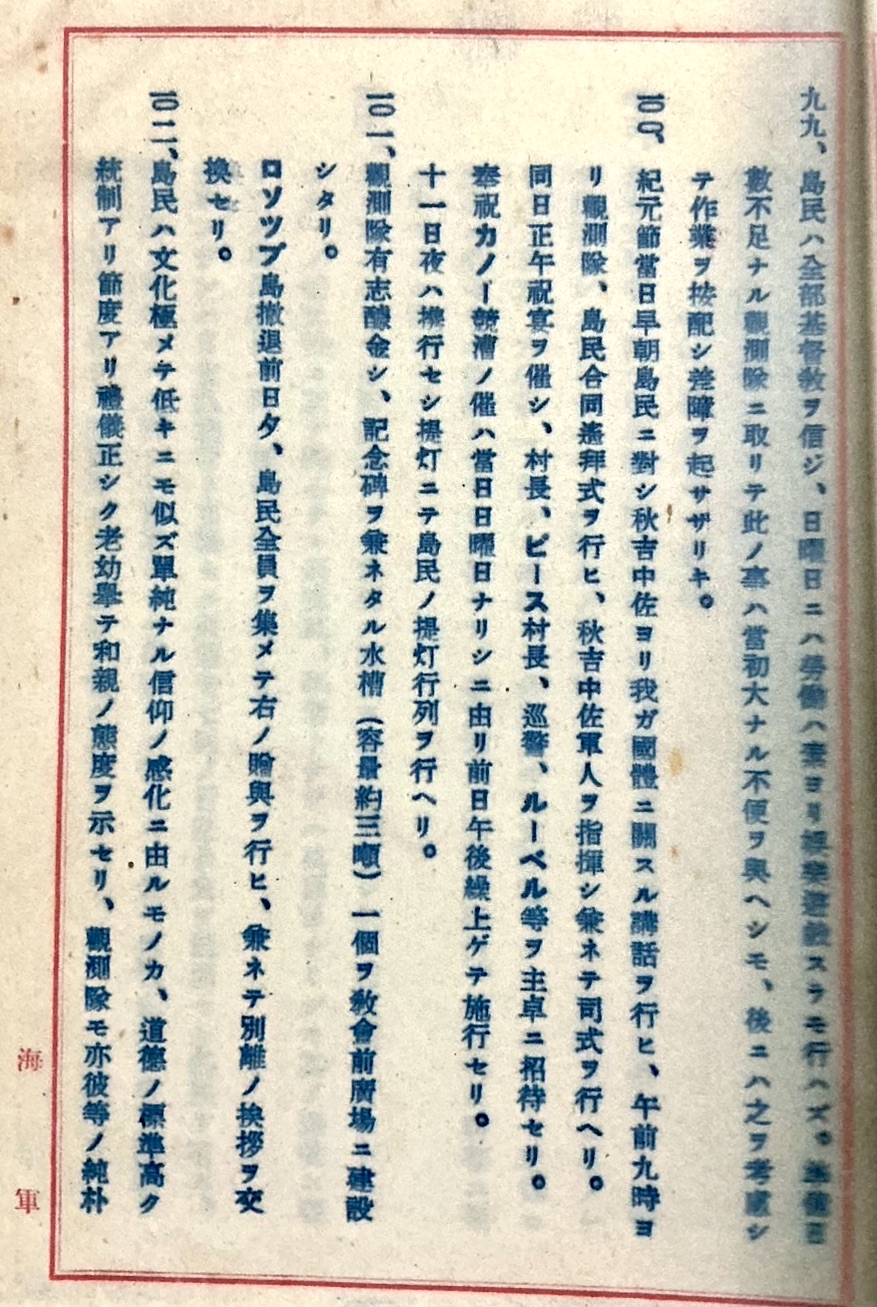 九九、島民ハ全部基督教ヲ信ジ、日曜日ニハ勞働ハ素ヨリ娯樂遊戯スラモ行ハズ。準備日
數不足ナル觀測隊ニ取リテ此ノ事ハ當初大ナル不便ヲ與ヘシモ、後ニハ之ヲ考慮シ
テ作業ヲ按配シ差障ヲ起サザリキ。
一〇〇、紀元節當日早朝島民ニ對シ秋吉中佐ヨリ我ガ國體ニ關スル講話ヲ行ヒ、午前九時ヨ
リ觀測隊、島民合同遙拜式ヲ行ヒ、秋吉中佐軍人ヲ指揮シ兼ネテ司式ヲ行ヘリ。
同日正午祝宴ヲ催シ、村長、ピース村長、巡警、ルーベル等ヲ主卓ニ招待セリ。
奉祝カノー競漕ノ催ハ當日日曜日ナリシニ由リ前日午後繰上ゲテ施行セリ。
十一日夜ハ携行セシ提灯ニテ島民ノ提灯行列ヲ行ヘリ。
一〇一、觀測隊有志醵金シ、記念碑ヲ兼ネタル水槽（容量約三噸）一個ヲ敎會前廣場ニ建設
シタリ。
ロソツプ島撤退前日夕、島民全員ヲ集メテ右ノ贈與ヲ行ヒ、兼ネテ別離ノ挨拶ヲ交
換セリ。
一〇二、島民ハ文化極メテ低キニモ似ズ單純ナル信仰ノ感化ニ由ルモノカ、道德ノ標準高ク
統制アリ節度アリ禮儀正シク老幼擧テ和親ノ態度ヲ示セリ、觀測隊モ亦彼等ノ純朴
海軍